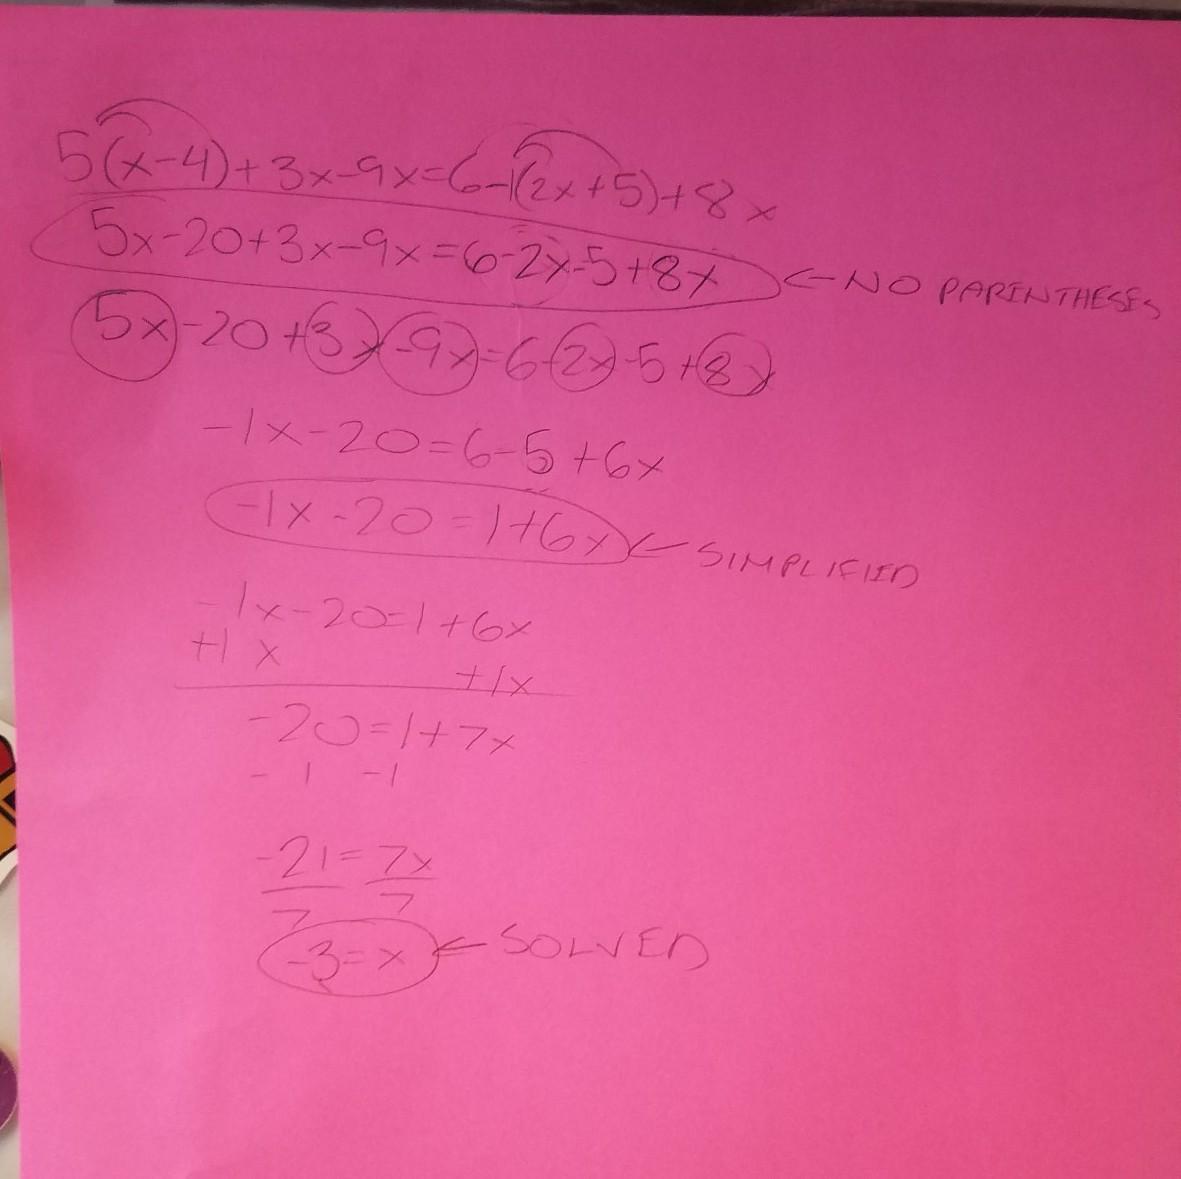 5(x-4)+3x-9x=6-1(2x+5)+8x
5x-20+3x-9x=6-2x-5+8x ← NO PARENTHESES
5x-20+3x-9x=6-2x-5+8x
-1x-20=6-5+6x
-1x-20=1+6x ← SIMPLIFIED
-1x-20=1+6x
+1x +1x
-20=1+7x
-1 -1
-21=7x
7 7
-3=x ← SOLVED